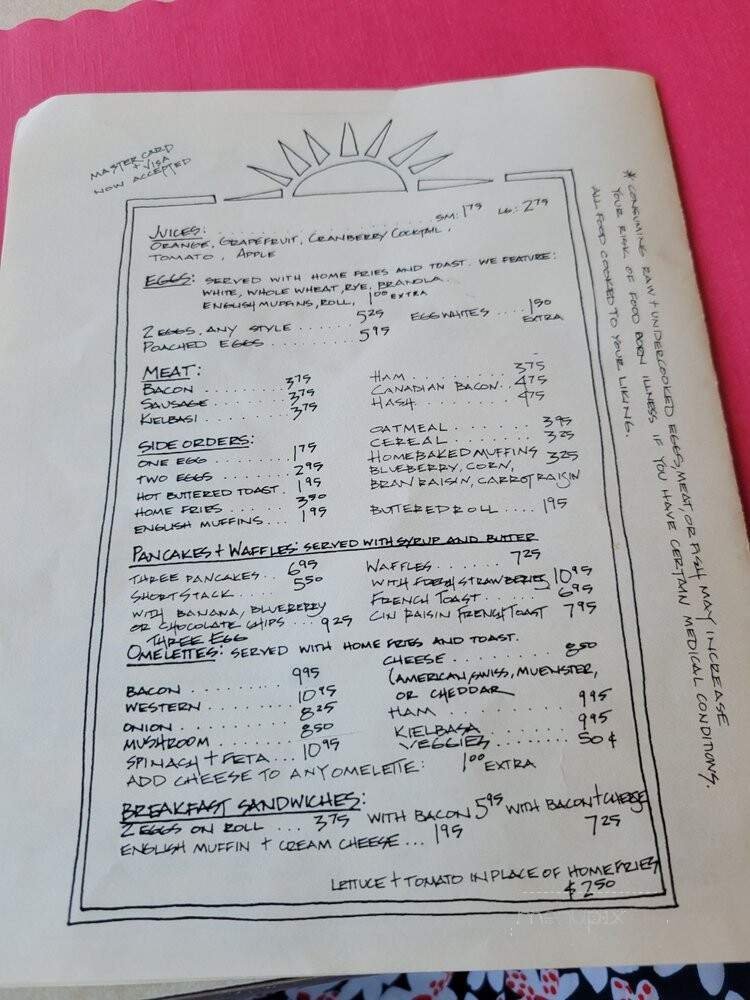 MASTERCARD
+ VISA
NOW ACCEPTED
JUICES: . . . . . . . . . . . . . . . . . . . . . . . . SM: 1.75 LG: 2.75
ORANGE, GRAPEFRUIT, CRANBERRY COCKTAIL,
TOMATO, APPLE
EGGS: SERVED WITH HOME FRIES AND TOAST. WE FEATURE:
WHITE, WHOLE WHEAT, RYE, BRANOLA.
ENGLISH MUFFINS, ROLL, 1.00 EXTRA
2 EGGS, ANY STYLE . . . . . . 5.25
POACHED EGGS . . . . . . . . 5.95
EGG WHITES . . . . 1.50
EXTRA
MEAT:
BACON . . . . . . . . . 3.75
SAUSAGE . . . . . . . . 3.75
KIELBASI . . . . . . . . 3.75
HAM . . . . . . . . . . . 3.75
CANADIAN BACON . . 4.75
HASH . . . . . . . . . . 4.75
SIDE ORDERS:
ONE EGG . . . . . . . . 1.75
TWO EGGS . . . . . . . 2.95
HOT BUTTERED TOAST . 1.95
HOME FRIES . . . . . . 3.50
ENGLISH MUFFINS . . . 1.95
OATMEAL . . . . . . . 3.95
CEREAL . . . . . . . . 3.25
HOMEBAKED MUFFINS 3.25
BLUEBERRY, CORN,
BRAN RAISIN, CARROT RAISIN
BUTTERED ROLL . . . . 1.95
PANCAKES + WAFFLES: SERVED WITH SYRUP AND BUTTER
THREE PANCAKES . . 6.95
SHORT STACK . . . . . 5.50
WITH BANANA, BLUEBERRY
OR CHOCOLATE CHIPS . . . 9.25
WAFFLES . . . . . . 7.25
WITH FRESH STRAWBERRIES 10.95
FRENCH TOAST . . . . 6.95
CIN RAISIN FRENCH TOAST 7.95
THREE EGG
OMELETTES: SERVED WITH HOME FRIES AND TOAST.
BACON . . . . . . . . 9.95
WESTERN . . . . . . . 10.95
ONION . . . . . . . . 8.25
MUSHROOM . . . . . . 8.50
SPINACH + FETA . . . 10.95
CHEESE . . . . . . . . . 8.50
(AMERICAN, SWISS, MUENSTER,
OR CHEDDAR
HAM . . . . . . . . . . 9.95
KIELBASA . . . . . . . 9.95
VEGGIES . . . . . . . . 50¢
ADD CHEESE TO ANY OMELETTE: 1.00 EXTRA
BREAKFAST SANDWICHES:
2 EGGS ON ROLL . . . 3.75 WITH BACON 5.95 WITH BACON + CHEESE
7.25
ENGLISH MUFFIN + CREAM CHEESE . . . 1.95
LETTUCE + TOMATO IN PLACE OF HOME FRIES
$2.50
* CONSUMING RAW + UNDERCOOKED EGGS, MEAT, OR FISH MAY INCREASE
YOUR RISK OF FOOD BORN ILLNESS IF YOU HAVE CERTAIN MEDICAL CONDITIONS.
ALL FOOD COOKED TO YOUR LIKING.
menupix